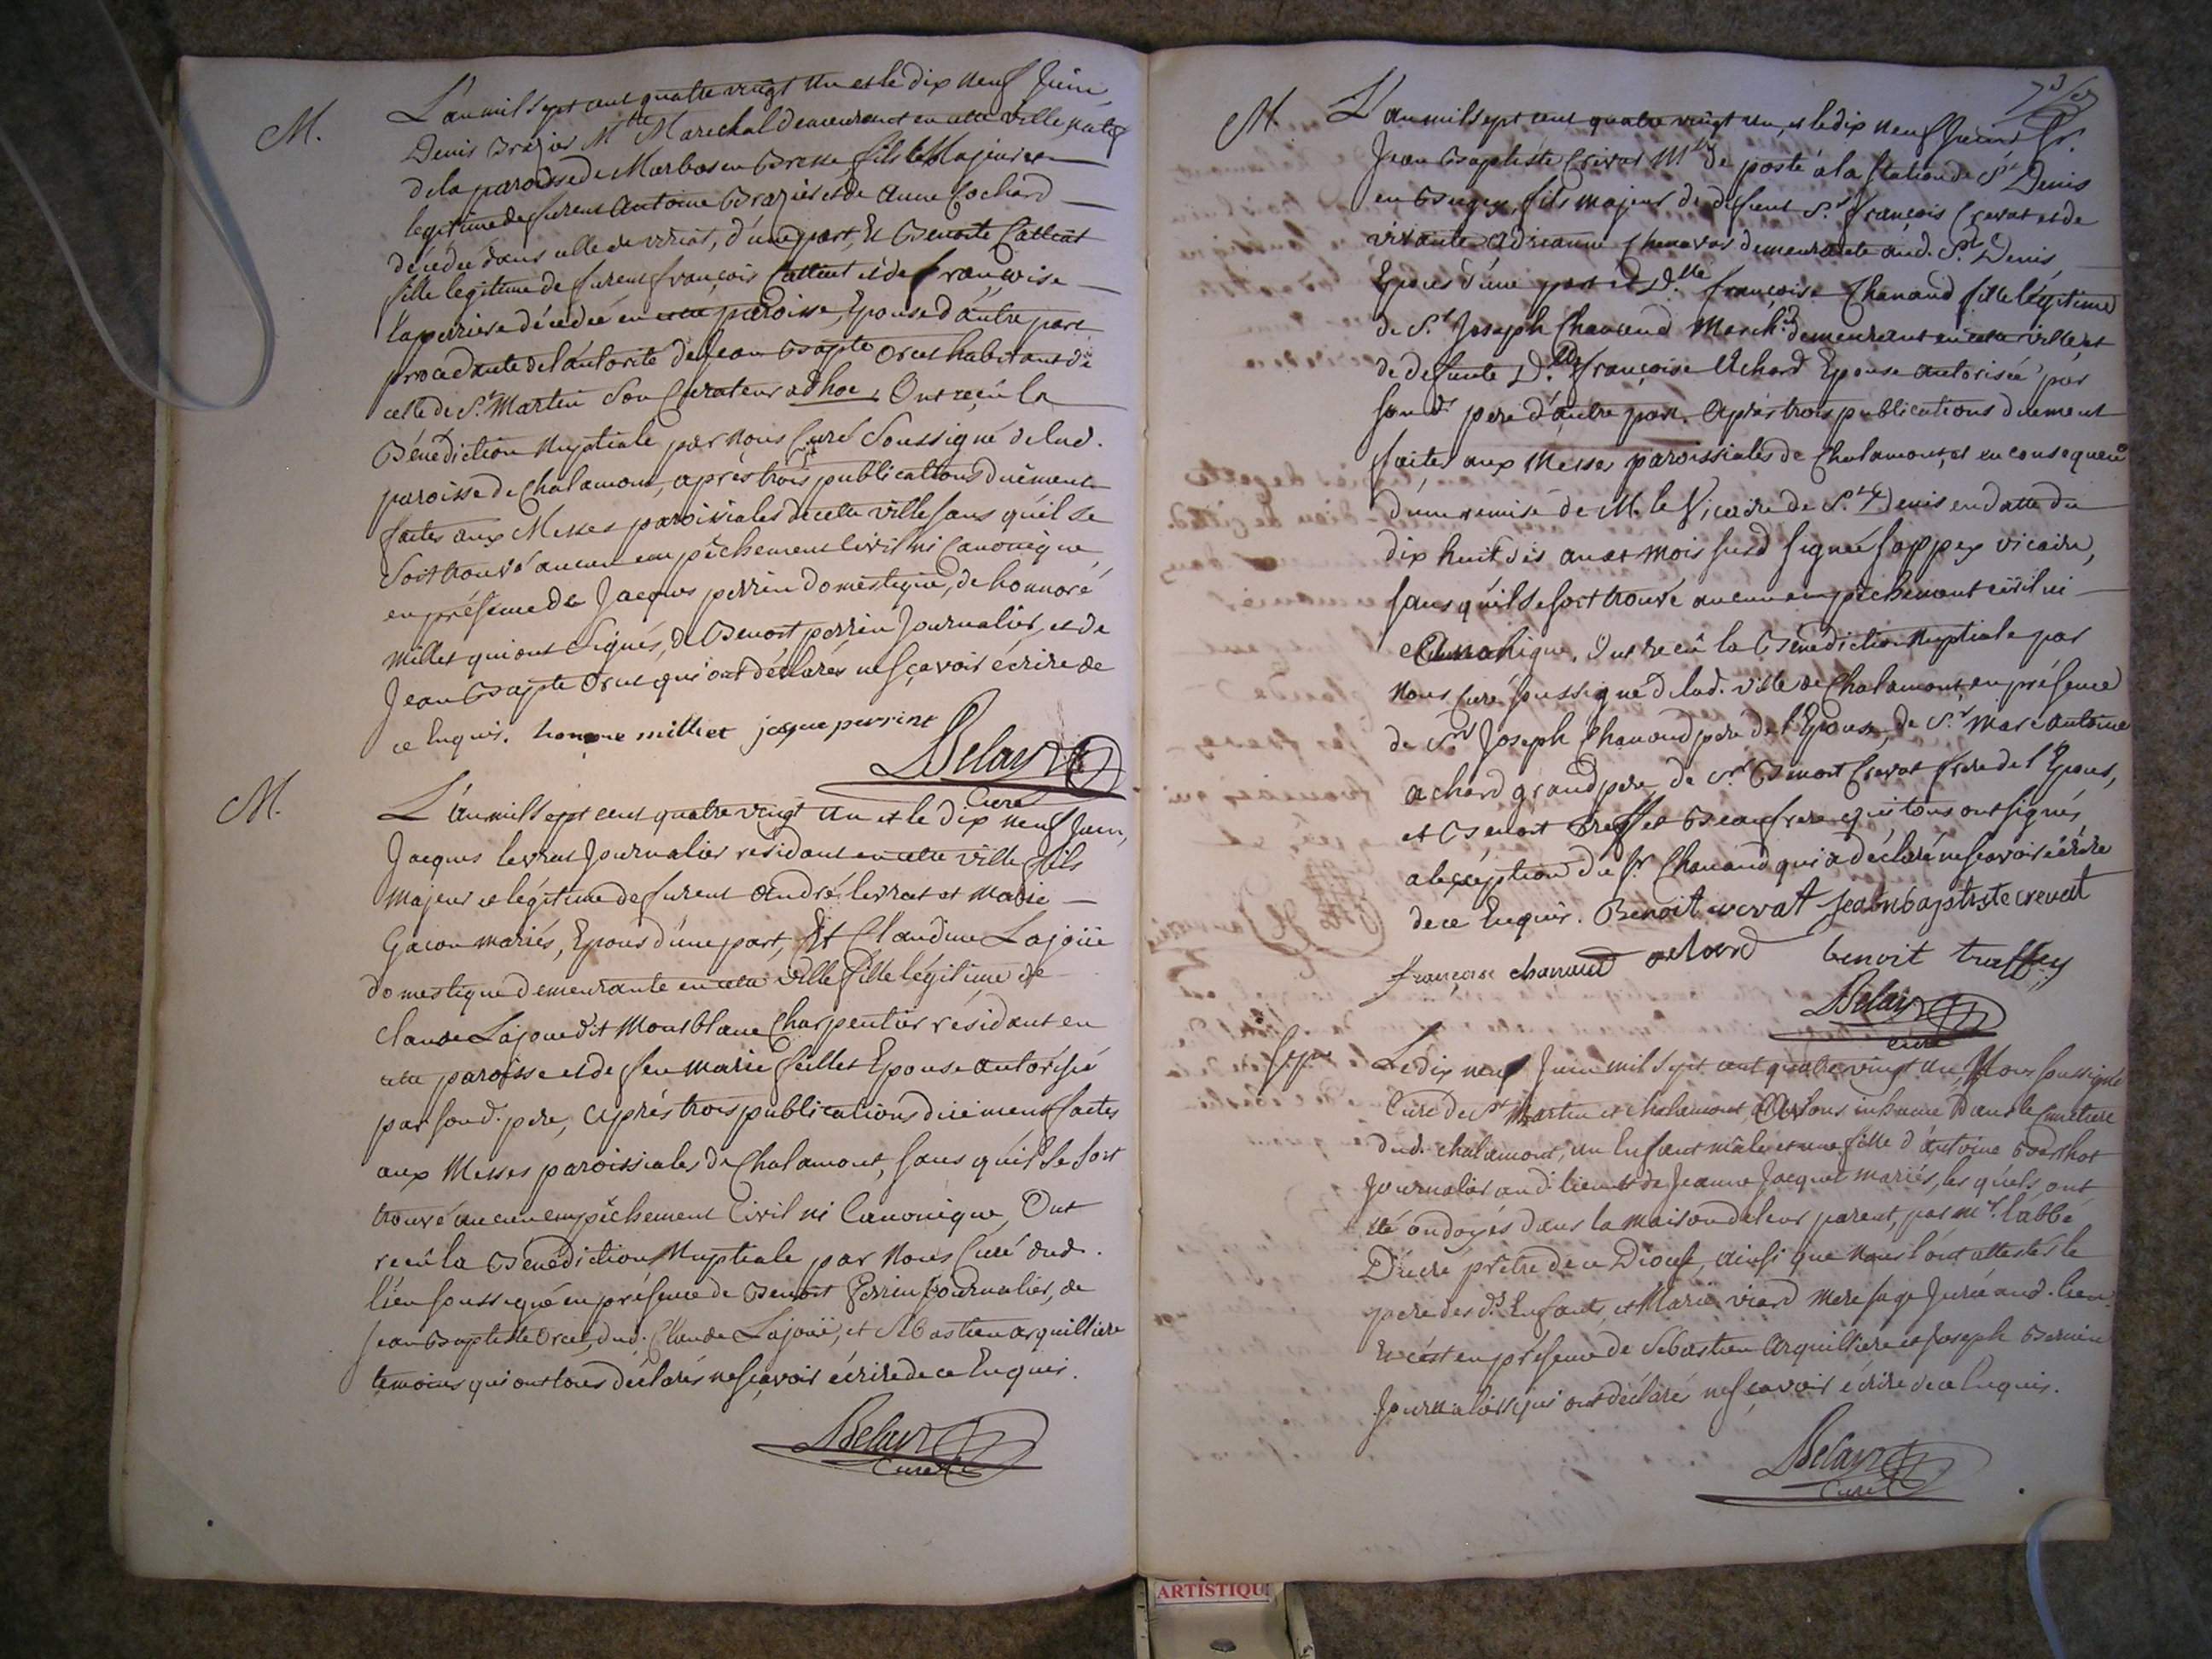 M.
L'an mil sept cent quatre vingt un et le dix neuf Juin,
Denis Brazier Mtre Marechal demeurant en cette ville natif
de la paroisse de Marboz en Bresse fils Majeur et
legitime de furent Antoine Brazier et de Anne Cochard
décédée dans celle de viriat, d'une part, Et Benoite Cattent
fille legitime de furent françois Cattent et de françoise
laperriere décédée en cette paroisse, Epouse d'autre part
procedante de l'autorité de Jean Bapte Orcet habitant de
celle de St. Martin Son Curateur ad hoc, Ont reçu la
Bénédiction Nuptiale par nous Curé Soussigné de lad.
paroisse de Chalamont, après trois publications duëment
faites aux Messes paroissiales de cette ville sans qu'il se
soit trouvé aucun empêchement Civil ni Canonique,
en présence de Jacques perrin domestique, de honnoré
Millet qui ont Signés, de Benoit perrin Journalier, et de
Jean Bapte Orcet qui ont déclarés ne sçavoir écrire de
ce Enquis. honore milliet jaque perrint
Belay
Curé
M.
L'an mil sept cent quatre vingt un et le dix neuf Juin,
Jacques levrat Journalier residant en cette ville fils
majeur et légitime de furent André levrat et Marie
Gacon mariés, Epous d'une part, Et Claudine Lajoüe
domestique demeurante en cette ville fille légitime de
Claude Lajoue dit Montblanc Charpentier résidant en
cette paroisse et de feu Marie feillet Epouse autorisée
par sond. pere, après trois publications düement faites
aux Messes paroissiales de Chalamont, sans qu'il se soit
trouvé aucun empêchement Civil ni Canonique, Ont
reçû la Bénédiction Nuptiale par Nous Curé dud.
lieu soussigné en présence de Benoit Perrin Journalier, de
Jean Baptiste Orcet, dud. Claude Lajoüe, et Sébastien arquilliere
temoins qui ont tous déclarés ne sçavoir écrire de ce Enquis.
Belay
Curé
M.
L'an mil sept cent quatre vingt un, et le dix neuf Juin Sr.
Jean Baptiste Crevat Mtre de poste à la Station de St Denis
en Bugey, fils majeur de défunt Sr. françois Crevat et de
vivante Adrianne Chenavas demeurante aud. St. Denis,
Epous d'une part et Dlle françoise Chanaud fille légitime
de Sr Joseph Chanaud March.d demeurant en cette ville et
de defunte Dlle françoise Achard Epouse autorisée par
son d. pere d'autre part. Après trois publications duement
faites aux Messes paroissiales de Chalamont, et en consequence
d'une remise de M. le Vicaire de St. Denis en datte du
dix huit des an et mois susd signée sappey vicaire,
sans qu'il se soit trouvé aucun empêchement civil ni
Canonique. Ont reçû la Bénédiction Nuptiale par
Nous Curé soussigné de lad. ville de Chalamont, en présence
de Sr Joseph Chanaud pere de l'Epouse, de Sr Marc antoine
achard grand pere, de Sr Benoit Crevat frere de l'Epous,
et Benoit Treffet Beaufrere qui tous ont signés,
a lexception du Sr Chanaud qui a déclaré ne sçavoir écrire
de ce Enquis. Benoit crevat Jean baptiste crevat
françoise chanaud achard benoit treffey
Belay
curé
Sepre
Le dix neuf Juin mil sept cent quatre vingt un, Nous soussigné
Curé de St Martin et chalamont, Avons inhumé Dans le Cimetiere
dud. chalamont, un Enfant mâle et une fille d'antoine Berthot
Journalier aud. lieu et de Jeanne Jacquet mariés, les quels ont
été ondoyés dans la maison de leur parent, par mr. l'abbé
Ducré prêtre de ce Diocese, ainsi que Nous l'ont attestés le
pere des ds. Enfants, et Marie viard Mere sage Jurée aud. lieu.
Et c'est en présence de Sébastien Arquilliere et Joseph Bernin
Journaliers qui ont déclaré ne sçavoir écrire de ce Enquis.
Belay
Curé
ARTISTIQU